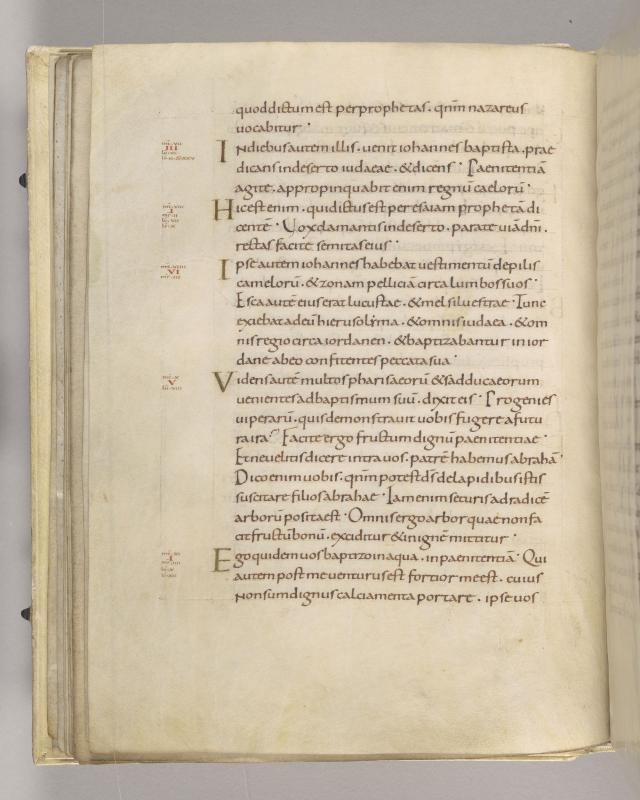 quoddictumest perprophetas. qnm nazareus
vocabitur ·
Indiebusautem illis. venit iohannes baptista. prae
dicans indeserto iudaeae. &dicens · Paenitentiā
agite. appropinquabit enim regnū caelorū ·
Hicestenim. quidictusest per esaiam prophetā di
centē · Vox clamantis indeserto. parate viādni.
rectas facite semitaseius ·
Ipse autem iohannes habebat vestimentū depilis
camelorū. &zonam pelliciā circa lumbossuos ·
Esca autē eius erat lucustae. &mel silvestrae · Tunc
exiebat adeū hierusolyma. &omnis iudaea. &om
nis regio circa iordanen. &baptizabantur in ior
dane abeo confitentes peccata sua ·
Videns autē multos pharisaeorū &sadducaeorum
venientes adbaptismum suū. dixit eis · Progenies
viperarū. quis demonstravit vobis fugere afutu
raira? Facite ergo fructum dignū paenitentiae ·
Etnevelitis dicere intravos. patrē habemus abrahā ·
Dico enim vobis. qnm potest ds delapidibus istis
suscitare filios abrahae · Iam enim securis adradicē
arborū positaest · Omnis ergo arbor quae nonfa
cit fructū bonū. exciditur &inignē mittitur ·
Ego quidem vos baptizo in aqua. inpaenitentiā · Qui
autem post me venturus est fortior me est. cuius
Non sum dignus calciamenta portare. ipse vos
III
I
VI
V
I